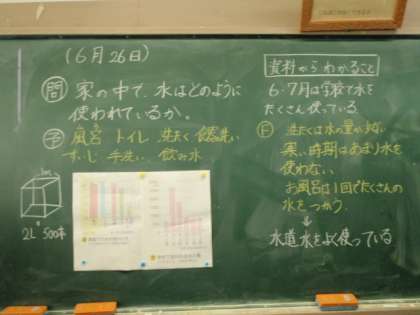 (6月26日)
問 家の中で、水はどのように
使われているか。
予 風呂 トイレ 洗たく 食器洗い
すいじ 手洗い 飲み水
2L 500本
資料からわかること
6・7月は学校で水を
たくさん使っている
洗たくは水の量が少ない
寒い時期はあまり水を
使わない
お風呂は1回でたくさんの
水をつかう。
水道水をよく使っている